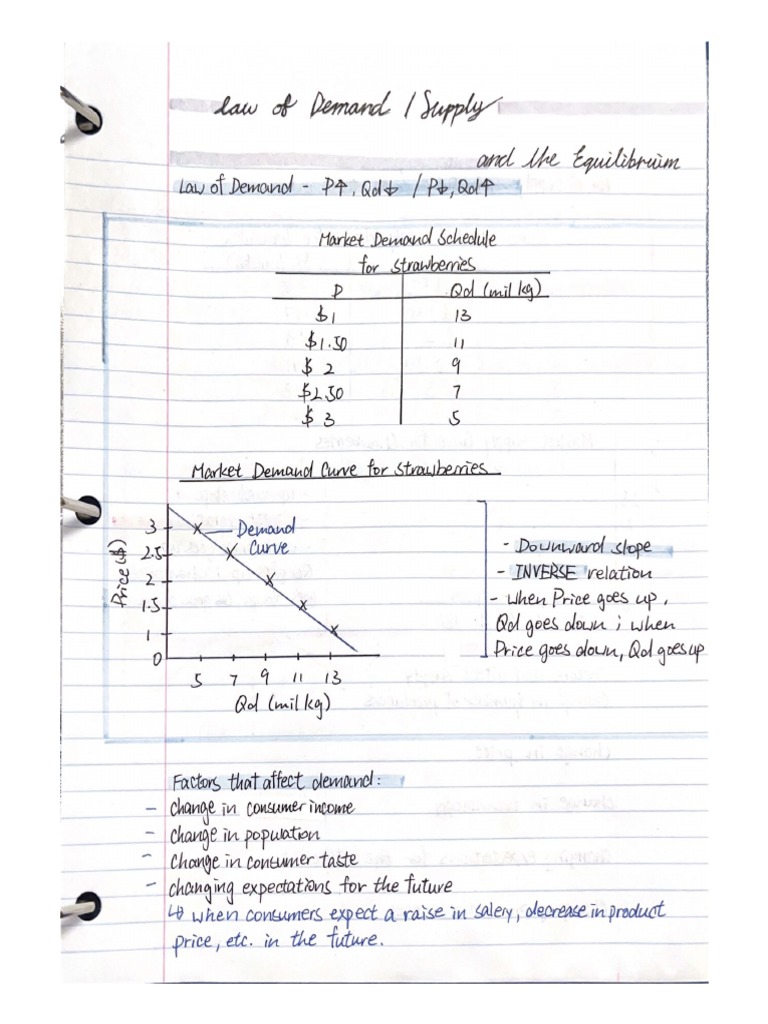 Law of Demand / Supply
and the Equilibrium
Law of Demand - P↑, Qd↓ / P↓, Qd↑
Market Demand Schedule
for strawberries
P Qd (mil kg)
$1 13
$1.50 11
$2 9
$2.50 7
$3 5
Market Demand Curve for strawberries
Demand
Curve
Price ($)
3
2.5
2
1.5
1
0
5 7 9 11 13
Qd (mil kg)
- Downward slope
- INVERSE relation
- when Price goes up,
Qd goes down; when
Price goes down, Qd goes up
Factors that affect demand:
- change in consumer income
- change in population
- change in consumer taste
- changing expectations for the future
↳ when consumers expect a raise in salery, decrease in product
price, etc. in the future.